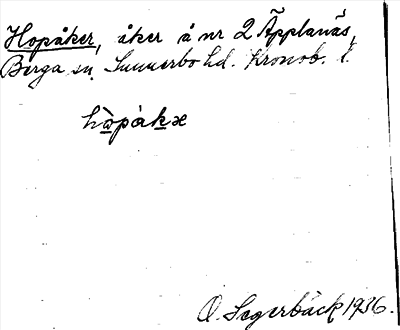 Hopåker, åker å nr 2 Äpplanäs,
Berga sn Sunnerbo hd. Kronob. l.
hɷ̀pàkæ
O. Segerbäck 1936.